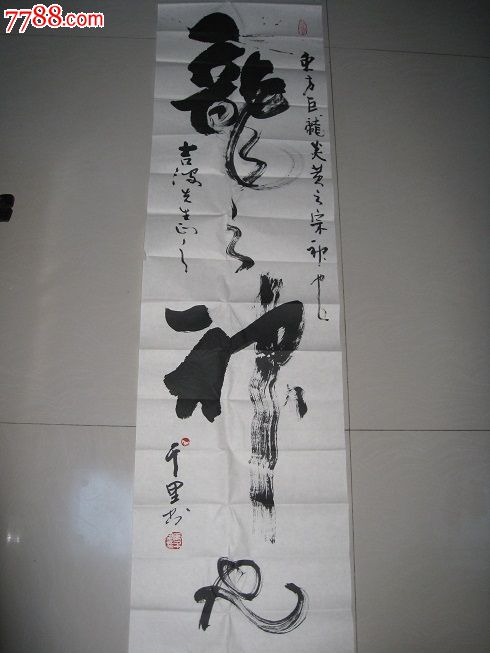 7788.com
東方巨龍炎黄之宗神也
龍之神也
吉波先生正之
千里书